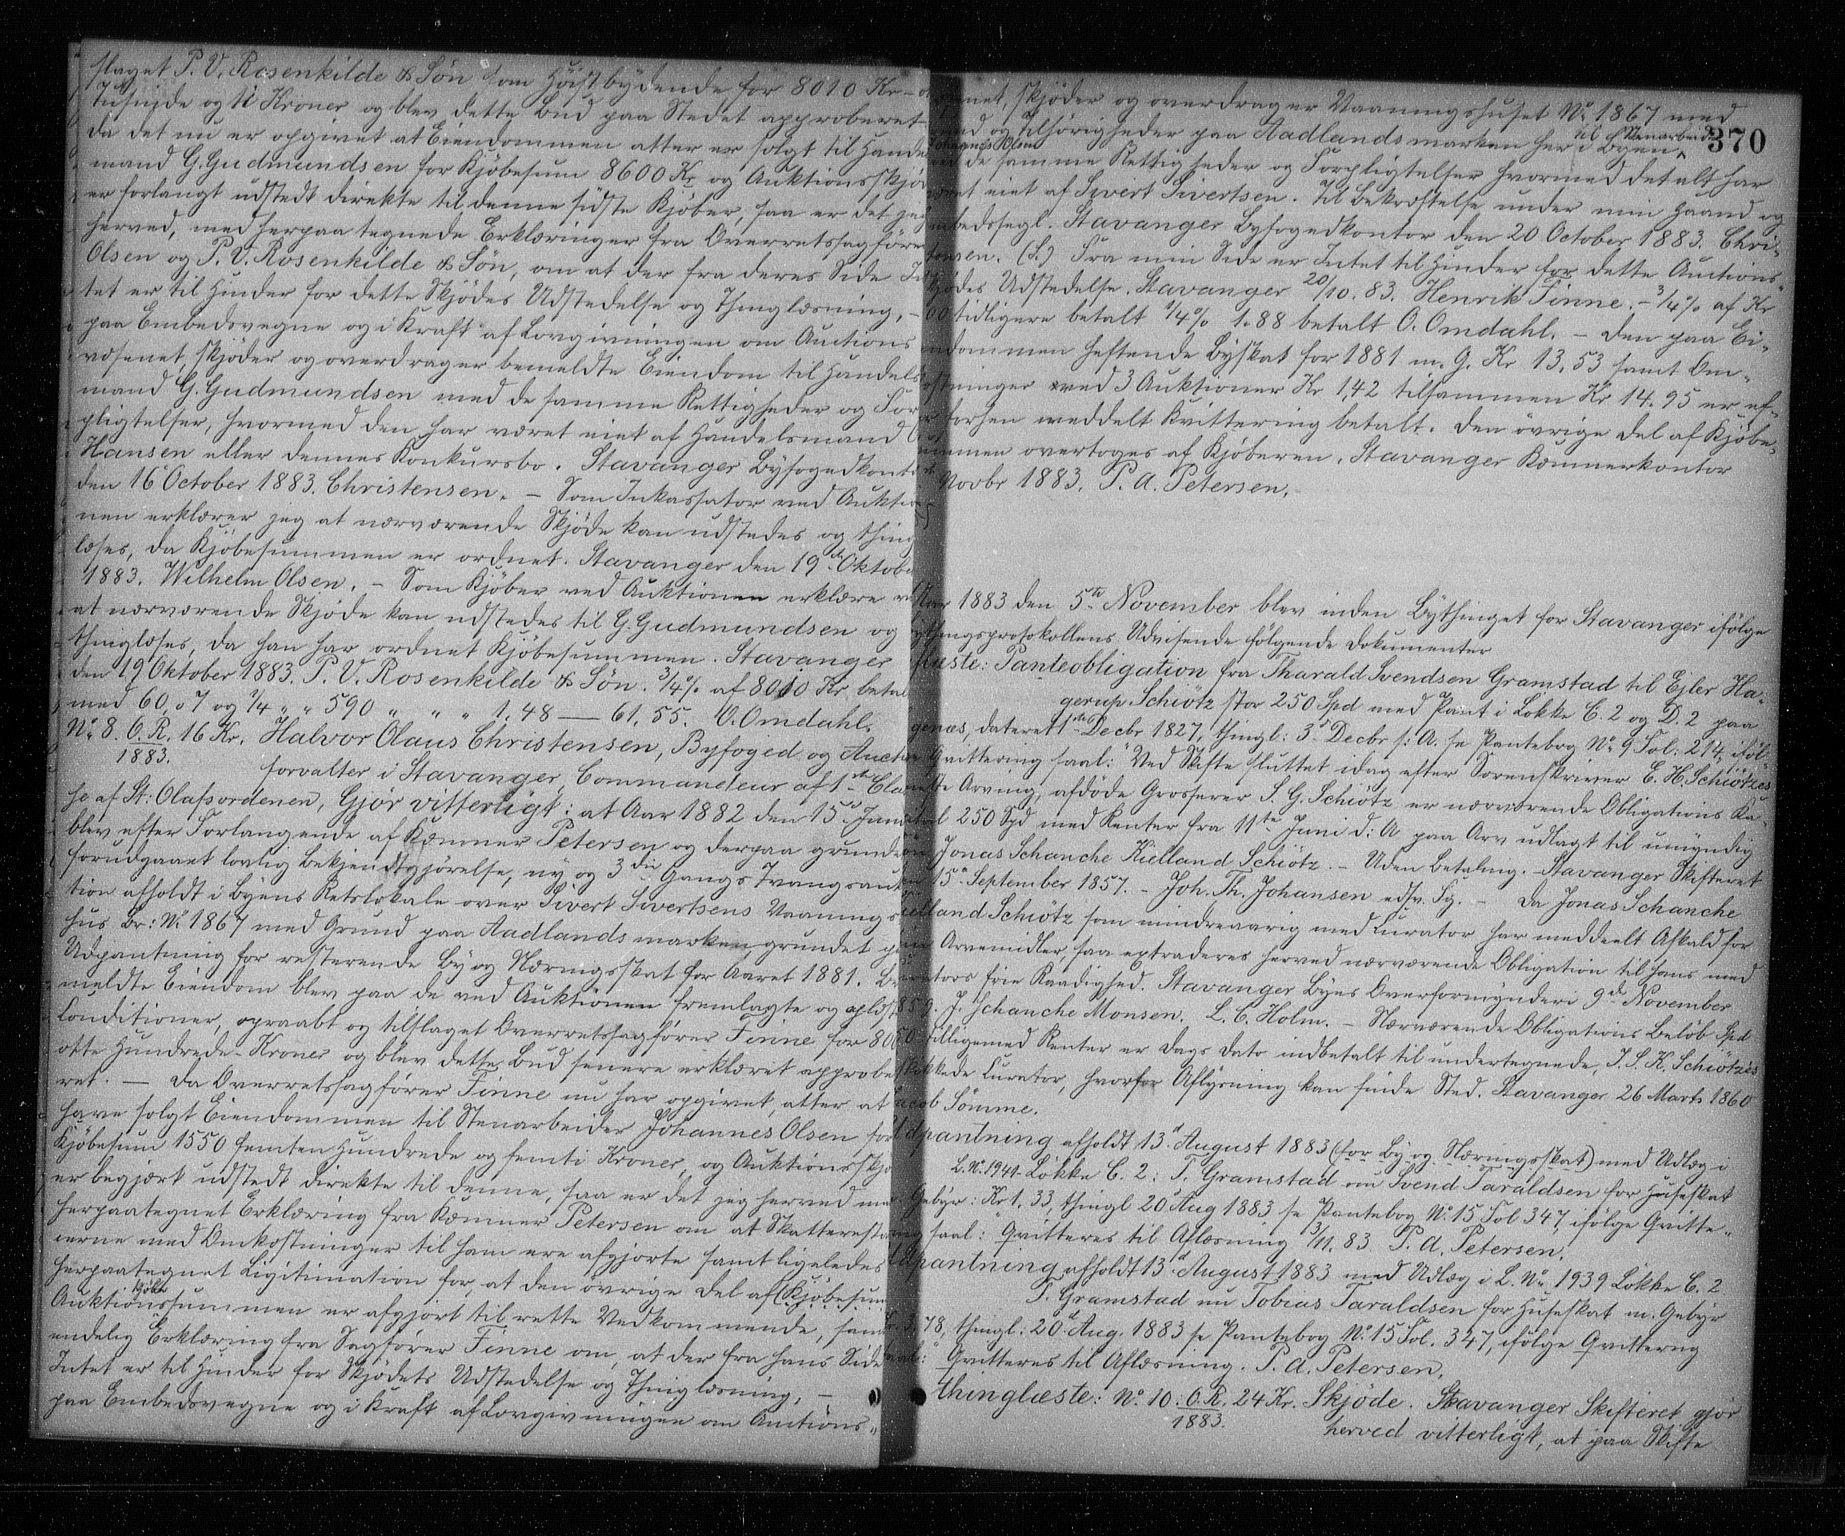 slaget P. V. Rosenkilde & Søn som Høistbydende for 8010 Kr –
Tusinde og ti Kroner og blev dette Bud paa Stedet approberet
da det nu er opgivet at Eiendommen atter er solgt til Handels
mand G. Gudmundsen for Kjøbesum 8600 Kr og Auktionsskjø
er forlangt udstedt direkte til denne sidste Kjøber, saa er det jeg
herved, med herpaa tegnede Erklæringer fra Overretssagfører
Olsen og P. V. Rosenkilde & Søn, om at der fra deres Side In
tet er til Hinder for dette Skjødes Udstedelse og Thinglæsning, –
paa Embedsvegne og i Kraft af Lovgivningen om Auctions
væsenet, skjøder og overdrager bemeldte Eiendom til Handels
mand G. Gudmundsen med de samme Rettigheder og For
pligtelser, hvormed den har været eiet af Handelsmand
Hansen eller dennes Konkursbo. Stavanger Byfogedkontor
den 16 October 1883. Christensen. – Som Inkassator ved Auktio
nen erklærer jeg at nærværende Skjøde kan udstedes og thing
læses, da Kjøbesummen er ordnet. Stavanger den 19de Oktober
1883. Wilhelm Olsen. – Som Kjøber ved Auktionen erklære vi
at nærværende Skjøde kan udstedes til G. Gudmundsen og
thinglæses, da han har ordnet Kjøbesummen. Stavanger
den 19 Oktober 1883. P. V. Rosenkilde & Søn. 3/4 % af 8010 Kr. betal
med 60,07 og 1/4 „ „ 590 „ „ „ 1.48 — 61.55. O. Omdahl.
No 8. O. R. 16 Kr. Halvor Olaus Christensen, Byfoged og Auction
1883. forvalter i Stavanger, Commandeur af 1ste Clas
se af St: Olafsordenen, Gjør vitterligt: at Aar 1882 den 15de Juni
blev efter Forlangende af Kæmner Petersen og derpaa grundet
forudgaaet lovlig Bekjendtgjørelse, ny og 3die Gangs Tvangsauk
tion afholdt i Byens Retslokale over Sivert Sivertsens Vaanings
hus Br: No 1867 med Grund paa Aadlandsmarken grundet paa
Udpantning for resterende By og Næringsskat for Aaret 1881. Be
meldte Eiendom blev paa de ved Auktionen fremlagte og oplæste
Conditioner, opraabt og tilslaget Overretssagfører Finne for 800
otte Hundrede Kroner og blev dette Bud senere erklæret approbe
ret. – Da Overretssagfører Finne nu har opgivet, atter at
have solgt Eiendommen til Stenarbeider Johannes Olsen for
Kjøbesum 1550 femten Hundrede og femti Kroner, og Auktionsskjø
er begjært udstedt direkte til denne, saa er det jeg herved med
herpaategnet Erklæring fra Kæmner Petersen om at Skatterestan
cerne med Omkostninger til ham ere afgjorte samt ligeledes
herpaategnet Ligitimation for, at den øvrige Del af (Kjøbesum
Kjøbe
Auktionssummen er afgjort til rette Vedkommende, samt
endelig Erklæring fra Sagfører Finne om, at der fra hans Side
Intet er til Hinder for Skjødets Udstedelse og Thinglæsning, –
paa Embedsvegne og i Kraft af Lovgivningen om Auctions-
370
væsenet, skjøder og overdrager Vaaningshuset No 1867 med
til Stenarbeider
Grund og Tilhørigheder paa Aadlandsmarken her i Byen
Johannes Olsen
med de samme Rettigheder og Forpligtelser hvormed det alt har
været eiet af Sivert Sivertsen. Til Bekræftelse under min Haand og
Embedssegl. Stavanger Byfogedkontor den 20 October 1883. Chri-
stensen. (S.) Fra min Side er Intet til Hinder for dette Auctions-
skjødes Udstedelse. Stavanger 20/10. 83. Henrik Finne. – 3/4 % af Kr
tidligere betalt 1/4 % 1.88 betalt O. Omdahl. – Den paa Ei-
endommen heftende Byskat for 1881 m. G. Kr 13,53 samt Om-
kostninger ved 3 Auktioner Kr 1,42 tilsammen Kr 14.95 er ef-
ter forhen meddelt Kvittering betalt. Den øvrige Del af Kjøbe-
summen overtoges af Kjøberen. Stavanger Kæmnerkontor
Novbr 1883. P. A. Petersen.
Aar 1883 den 5te November blev inden Bythinget for Stavanger ifølge
Bythingsprotokollens Udvisende følgende Dokumenter
aflæste: Panteobligation fra Tharald Svendsen Gramstad til Ejler Ha-
gerup Schiötz stor 250 Spd med Pant i Løkke C. 2 og D. 2 paa
genæs, dateret 11te Decbr 1827, thingl: 3d Decbr s: A. se Pantebog No 9 Fol: 214, iføl-
Qvittering saal: "Ved Skifte sluttet idag efter Sorenskriver E. H. Schiötzes
Arving, afdøde Grosserer S. G. Schiötz er nærværende Obligations Ka-
pital 250 Spd med Renter fra 11te Juni d: A paa Arv udlagt til umyndig
Jonas Schanche Kielland Schiötz. – Uden Betaling. – Stavanger Skifteret
15de September 1857. – Joh. Th. Johansen edsv. Fg. – Da Jonas Schanche
Kielland Schiötz som mindreaarig med Curator har meddeelt Afkald for
Arvemidler, saa extraderes herved nærværende Obligation til hans med
Curators frie Raadighed. Stavanger Byes Overformynderi 9de November
1859. J. Schanche Monsen. L. C. Holm. – Nærværende Obligations Beløb Spd
tilligemed Renter er Dags Dato indbetalt til undertegnede, J. S. K. Schiötzes
Curator, hvorfor Aflysning kan finde Sted. Stavanger 26 Marts 1860
Jacob Sömme.
Udpantning afholdt 13de August 1883 (for By og Næringsskat) med Udlæg i
L. No. 1941 Løkke C. 2: T. Gramstad nu Svend Taraldsen for Huseskat
Gebyr: Kr 1. 33, thingl 20 Aug 1883 se Pantebog No 15 Fol 347, ifølge Qvitte-
ring saal: Qvitteres til Aflæsning 3/11. 83 P. A. Petersen.
Udpantning afholdt 13de August 1883 med Udlæg i L. No. 1939 Løkke C. 2
T. Gramstad nu Tobias Taraldsen for Huseskat m. Gebyr
78, thingl: 20de Aug. 1883 se Pantebog No 15 Fol. 347, ifølge Qvittering
saal: "Qvitteres til Aflæsning. P. A. Petersen.
thinglæste: No. 10. O. R. 24 Kr. Skjøde. Stavanger Skifteret gjør
1883. herved vitterligt, at paa Skifte